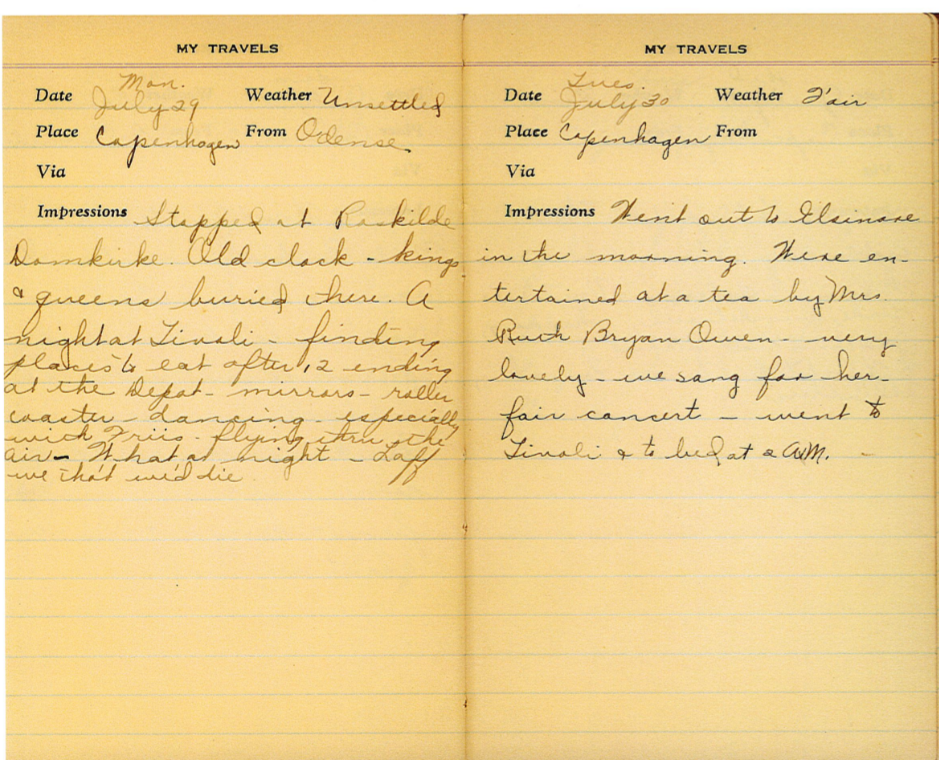 MY TRAVELS
Date Mon. July 29 Weather Unsettled
Place Copenhagen From Odense
Via
Impressions Stopped at Roskilde
Domkirke. Old clock - kings
& queens buried there. A
night at Tivoli - finding
places to eat after 12 ending
at the Depot - mirrors - roller
coaster - dancing - especially
with Friis - flying thru the
air - What a night - Laff
we thot we'd die
MY TRAVELS
Date Tues. July 30 Weather Fair
Place Copenhagen From
Via
Impressions Went out to Elsinore
in the morning. Were en-
tertained at a tea by Mrs.
Ruth Bryan Owen - very
lovely - we sang for her -
fair concert - went to
Tivoli & to bed at 2 A.M. -